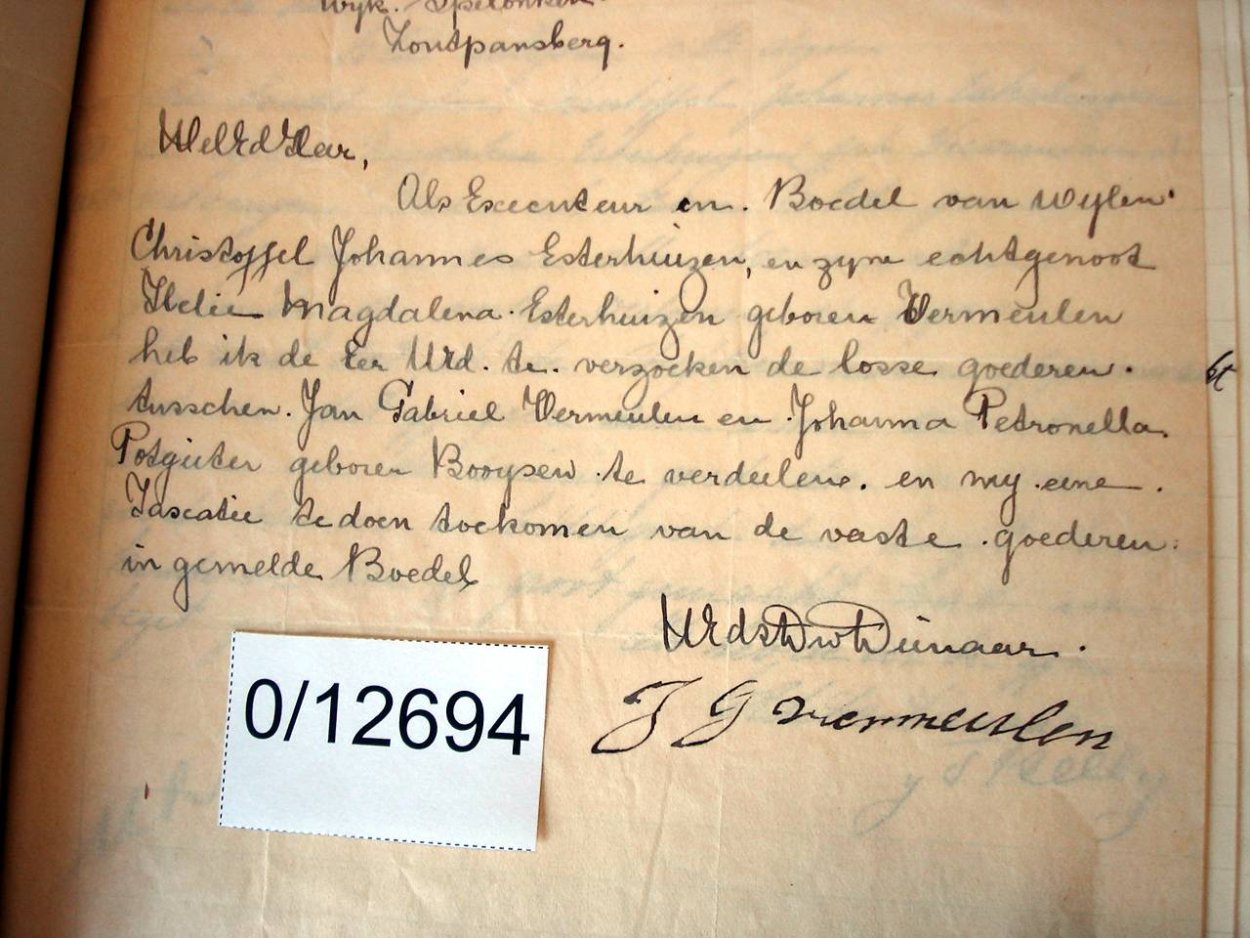 Wyk. Spelonken
Zoutpansberg.
WelEdHeer,
Als Executeur in. Boedel van wylen
Christoffel Johannes Esterhuizen, en zyne echtgenoot
Helie Magdalena. Esterhuizen geboren Vermeulen
heb ik de Eer UEd. te. verzoeken de losse goederen.
tusschen. Jan Gabriel Vermeulen en Johanna Petronella
Potgieter geboren Booysen te verdeelene. en my eene.
Taxatie te doen toekomen van de vaste goederen.
in gemelde Boedel
UEdstDwDienaar.
J G Vermeulen
0/12694